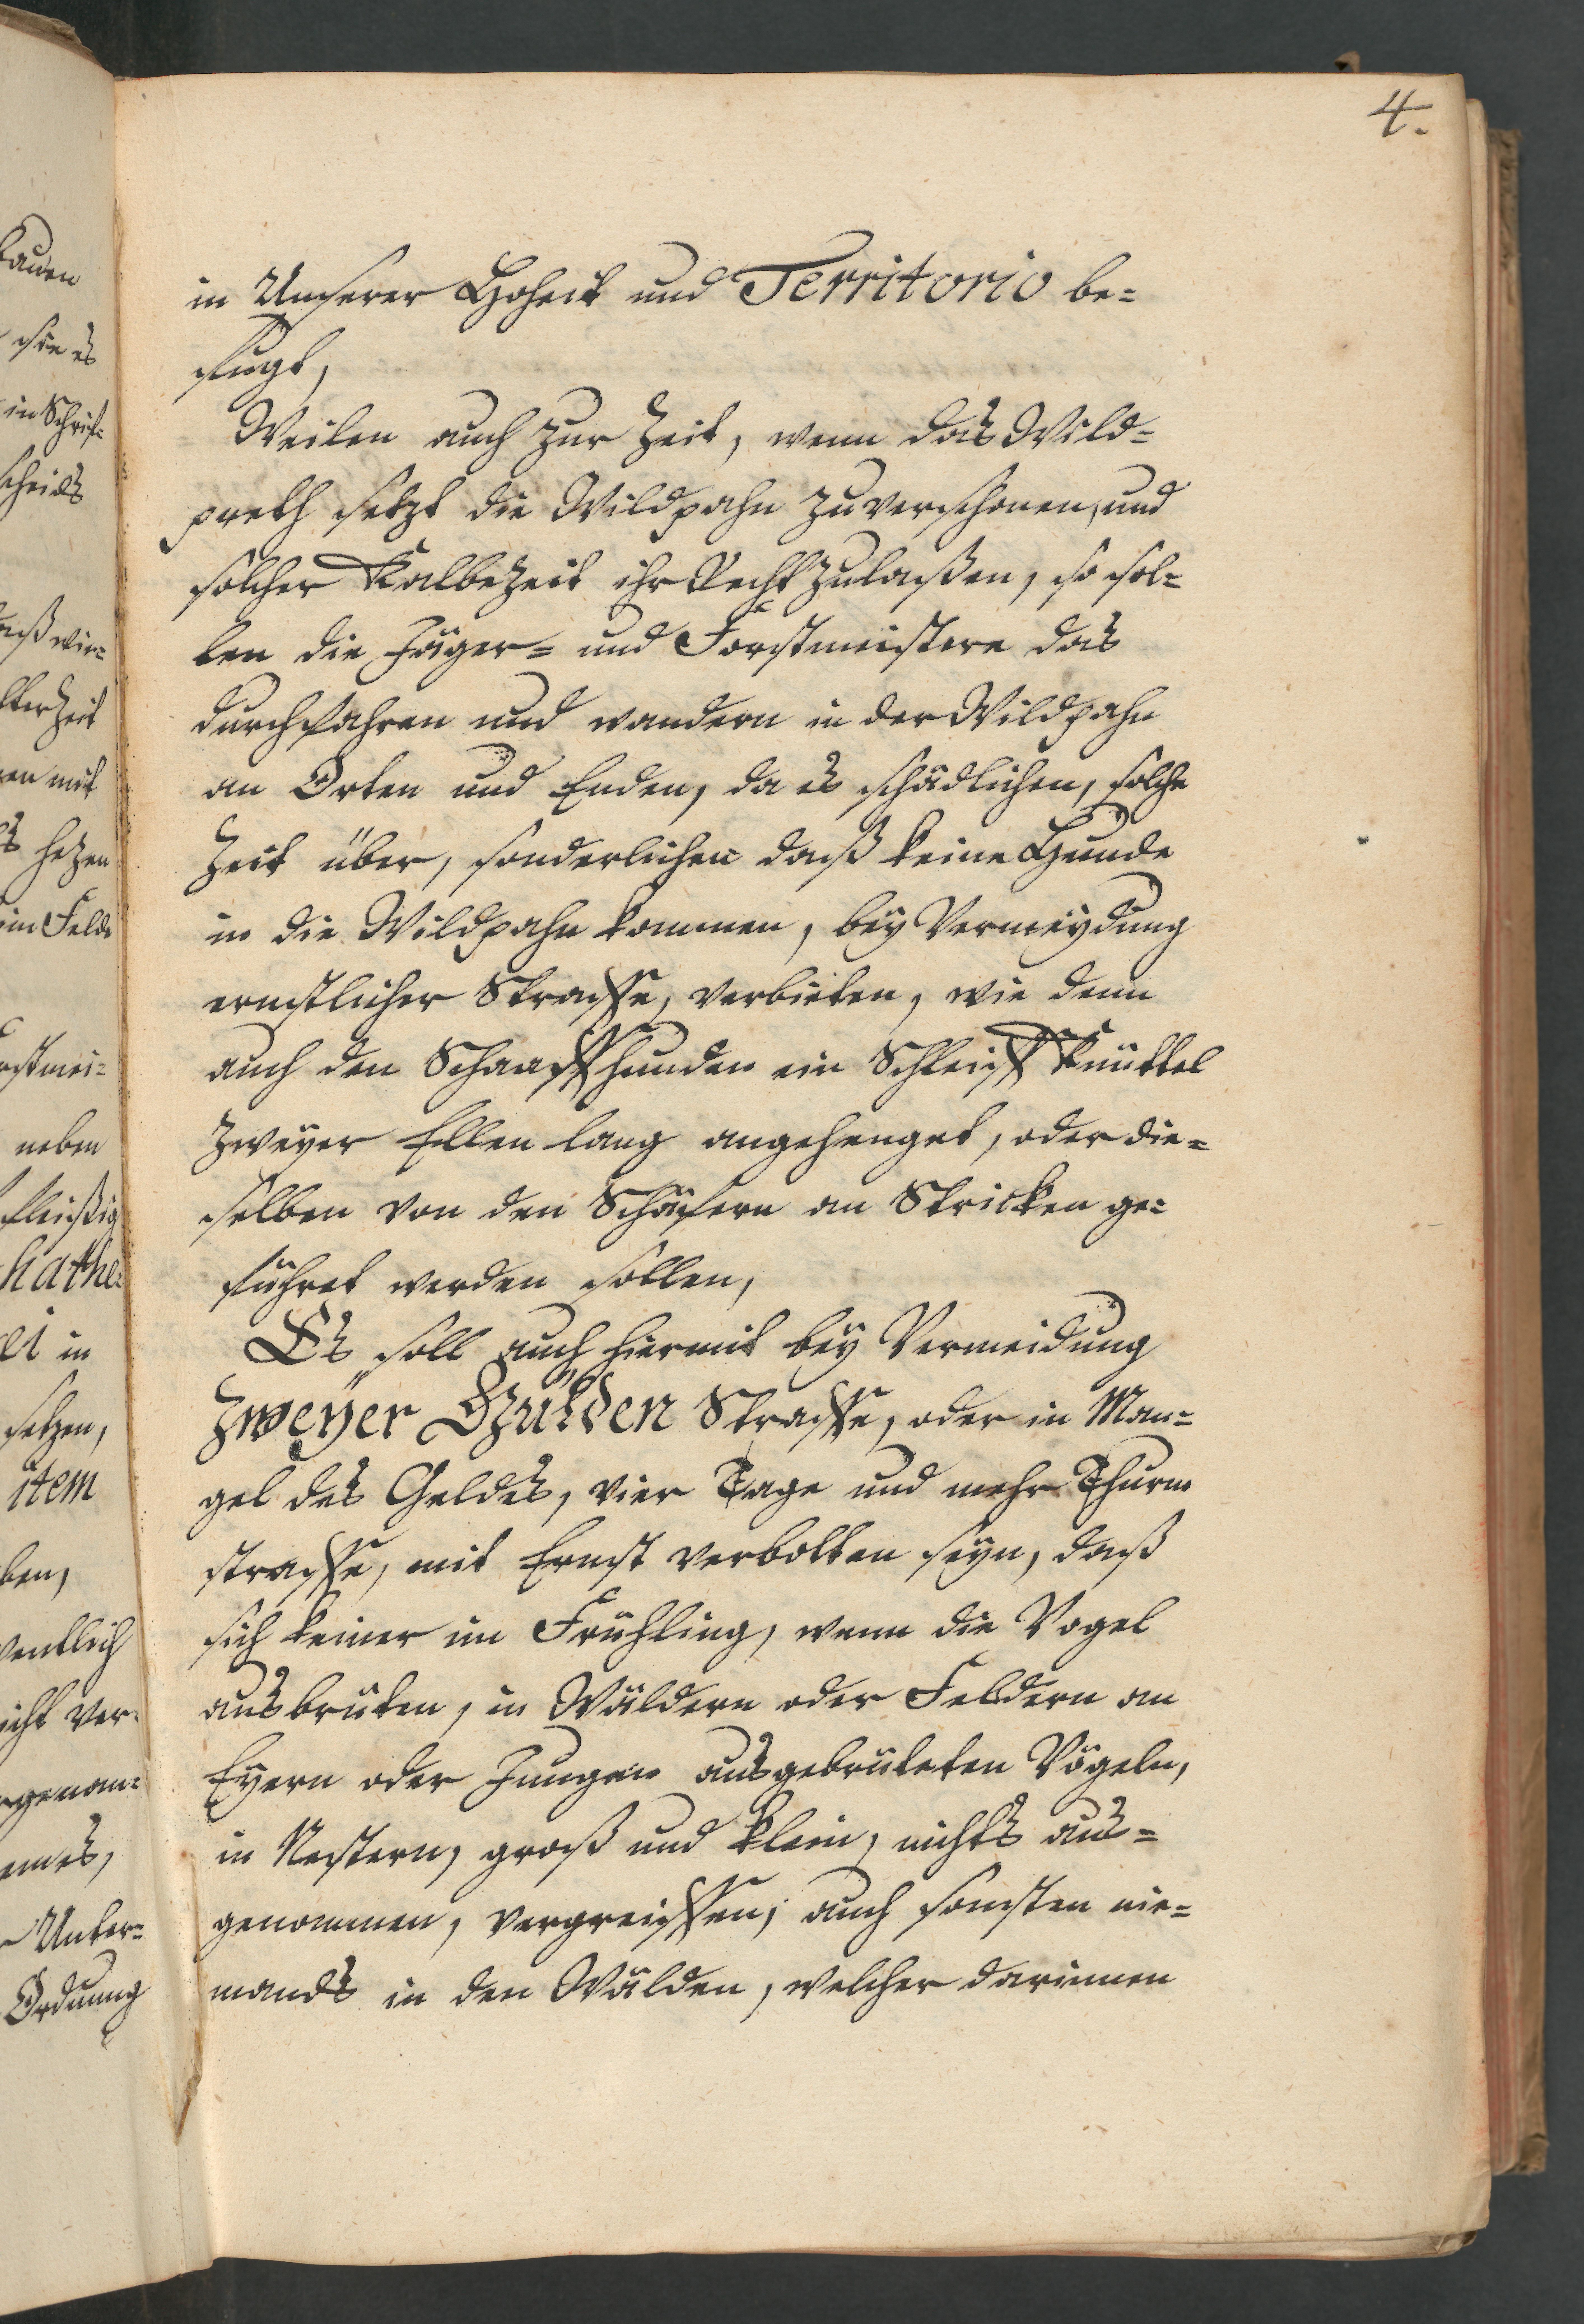 4.
in Unserer Hoheit und Territorio be=
fugt,
Weilen auch zur Zeit, wenn das Wild=
preth setzt die Wildpahn zuverschonen, und
solcher Kalbezeit ihr Recht zulaßen, so sol=
len die Jäger= und Forstmeistere das
durchfahren und wandern in der Wildpahn
an Orten und Enden, da es schädlichen, solche
Zeit über, sonderlichen daß keine Hunde
in die Wildpahn kommen, bey Vermeydung
ernstlicher Straffe, verbieten, wie denn
auch den Schaaffhunden ein Schleiff Knüttel
zweyer Ellen lang angehenget, oder die=
selben von den Schäfern an Stricken ge=
führet werden sollen,
Es soll auch hiermit bey Vermeidung
zweyer Gülden Straffe, oder in Man=
gel des Geldes, vier Tage und mehr Thurm
straffe, mit Ernst verbotten seyn, daß
sich keiner im Frühling, wenn die Vogel
ausbrüten, in Wäldern oder Feldern an
Eyern oder Jungen ausgebrüteten Vögeln,
in Nestern, groß und klein, nichts aus=
genommen, vergreiffen; auch sonsten nie=
mands in den Wälden, welcher darinnen